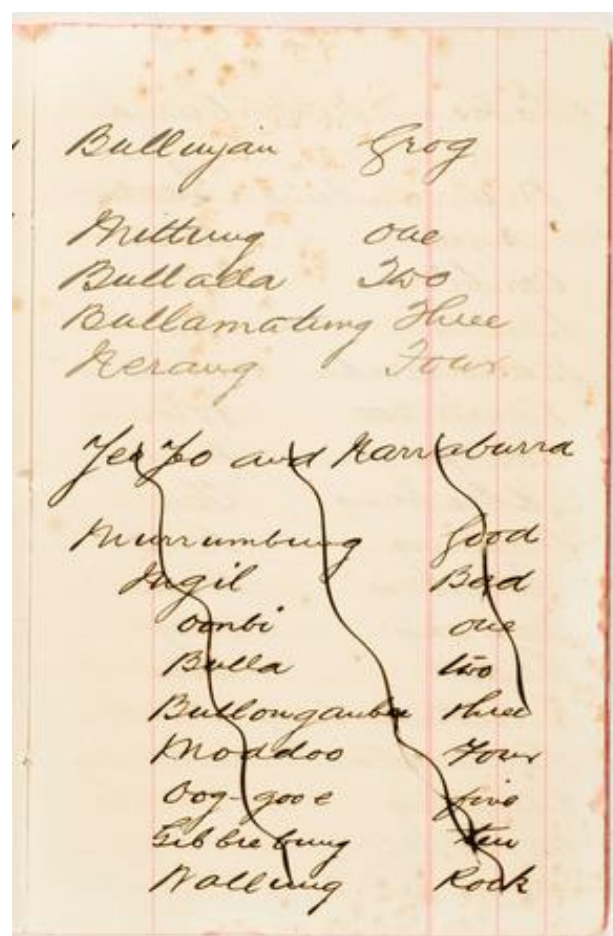 Bullinjan Grog
Mittung one
Bullalla Two
Bullamatung Three
Nerang Four
Yeo Yeo and Narraburra
Murrumbung Good
Ingil Bad
oonbi one
Bulla two
Bullongambu three
Moddoo Four
Oog-gooe five
Gibbiebung ten
Walling Rock